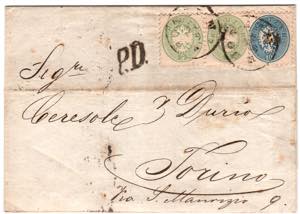 P.D.
Sigri
Ceresole & Durio
Torino
Via S. Maurizio 9.